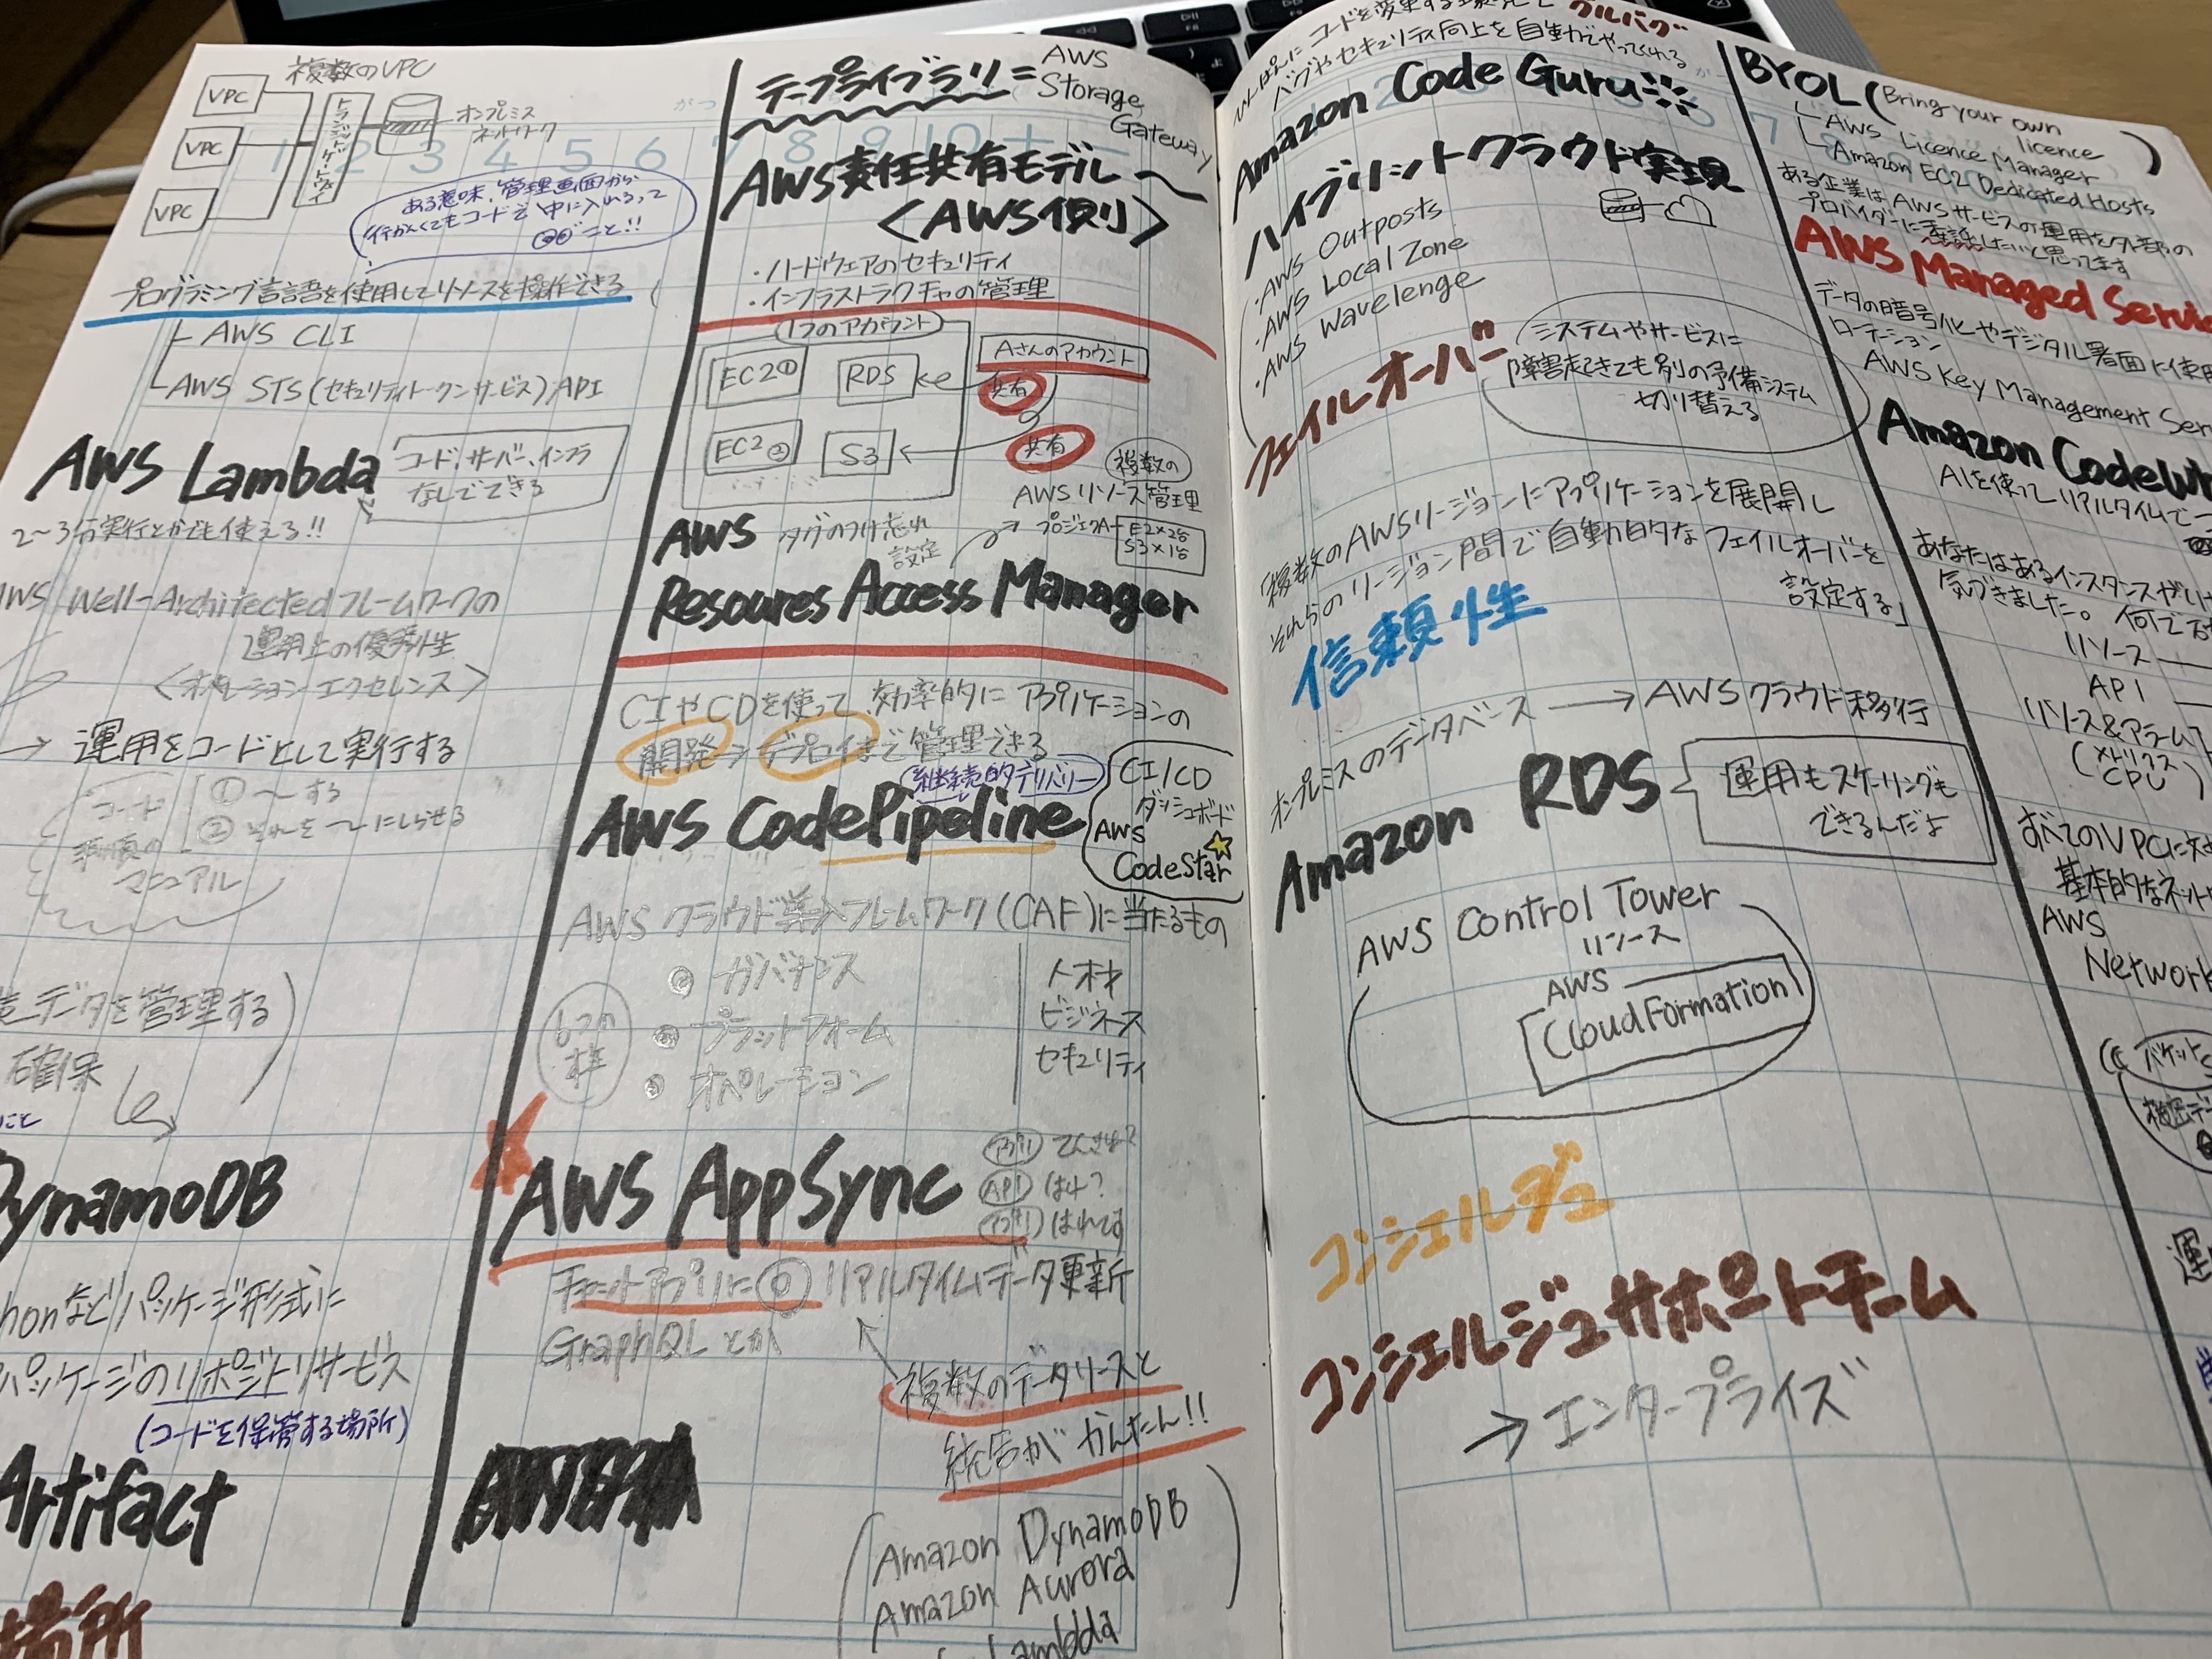 複数のVPC
VPC
VPC
VPC
トランジットゲートウェイ
オンプレミス
ネットワーク
ある意味、管理画面から
行かなくてもコードで中に入れるって
こと!!
プログラミング言語を使用してリソースを操作できる
AWS CLI
AWS STS(セキュリティトークンサービス)API
AWS Lambda
コード、サーバー、インフラ
なしでできる
2〜3分実行とかでも使える!!
AWS Well-Architectedフレームワークの
運用上の優秀性
<オペレーションエクセレンス>
→ 運用をコードとして実行する
コード
手順の
マニュアル
① 〜する
② それを〜にしらせる
データを管理する
確保
こと
DynamoDB
honなどパッケージ形式に
パッケージのリポジトリサービス
(コードを保管する場所)
Artifact
場所
がつ
1 2 3 4 5 6 7 8 9 10
テープライブラリ=AWS
Storage
Gateway
AWS責任共有モデル〜
<AWS側>
・ハードウェアのセキュリティ
・インフラストラクチャの管理
1つのアカウント
EC2①
RDS
EC2②
S3
Aさんのアカウント
共有
共有
複数の
AWSリソース管理
プロジェクトA
E2×2台
S3×1台
AWS
タグのつけ忘れ
設定
Resoures Access Manager
CIやCDを使って、効率的にアプリケーションの
開発→デプロイまで管理できる
継続的デリバリー
AWS CodePipeline
CI/CD
ダッシュボード
AWS
CodeStar
AWSクラウド導入フレームワーク(CAF)に当たるもの
6つの
柱
ガバナンス
プラットフォーム
オペレーション
人材
ビジネス
セキュリティ
AWS AppSync
アプリ てんきは?
API はれ?
アプリ はれです
チャットアプリに◎ リアルタイムデータ更新
GraphQLとか
複数のデータソースと
統合がかんたん!!
Amazon DynamoDB
Amazon Aurora
Lambdda
コードを変更する
グルバグ
バグやセキュリティ向上を自動でやってくれる
Amazon Code Guru
ハイブリットクラウド実現
・AWS Outposts
・AWS Local Zone
・AWS Wavelenge
フェイルオーバー
システムやサービスに
障害起きても別の予備システム
切り替える
「複数のAWSリージョンにアプリケーションを展開し
それらのリージョン間で自動的なフェイルオーバーを
設定する」
信頼性
オンプレミスのデータベース → AWSクラウド移行
Amazon RDS
運用もスケーリングも
できるんだよ
AWS Control Tower
リソース
AWS
CloudFormation
コンシェルジュ
コンシェルジュサポートチーム
→ エンタープライズ
BYOL(Bring your own
licence)
AWS Licence Manager
Amazon EC2 Dedicated Hosts
ある企業はAWSサービスの運用を外部の
プロバイダーに委託したいと思ってます
AWS Managed Servic
データの暗号化やデジタル署名に使用
ローテーション
AWS Key Management Ser
Amazon CodeWh
AIを使ってリアルタイムで
あなたはあるインスタンスが
気づきました。何で
リソース
API
リソース&アラーム
(メトリクス
CPU)
すべてのVPCに対
基本的なネット
AWS
Network
バケット
検出デ
運